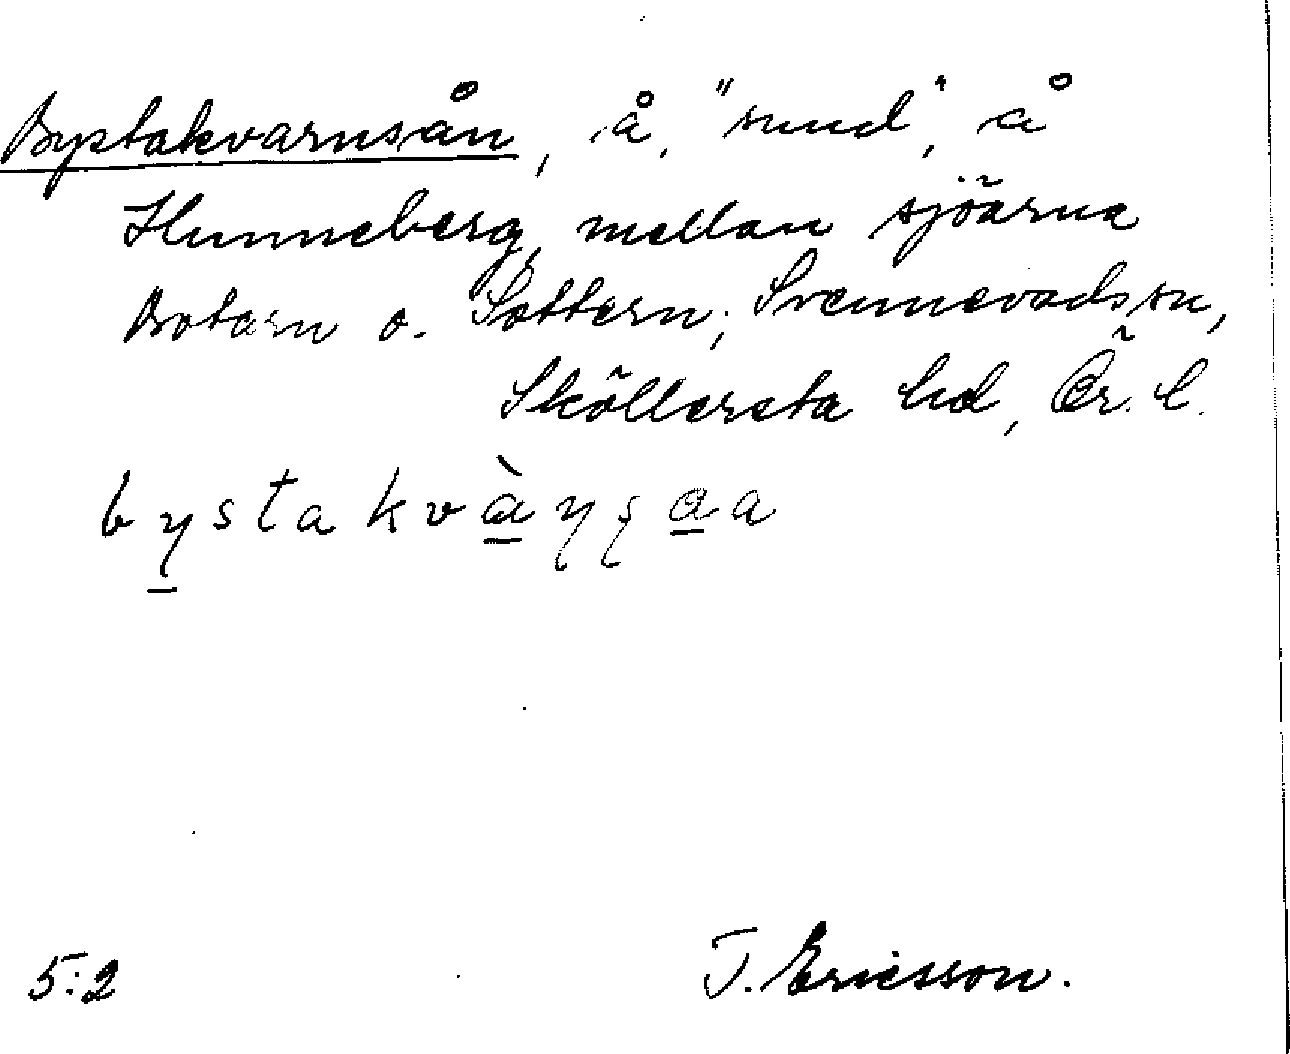 Bystakvarnsån, å, "sund", å
Hunneberg, mellan sjöarna
Botarn o. Sottern; Svennevads sn,
Sköllersta hd, Ör. l.
bystakvà
5:2
T. Ericsson.